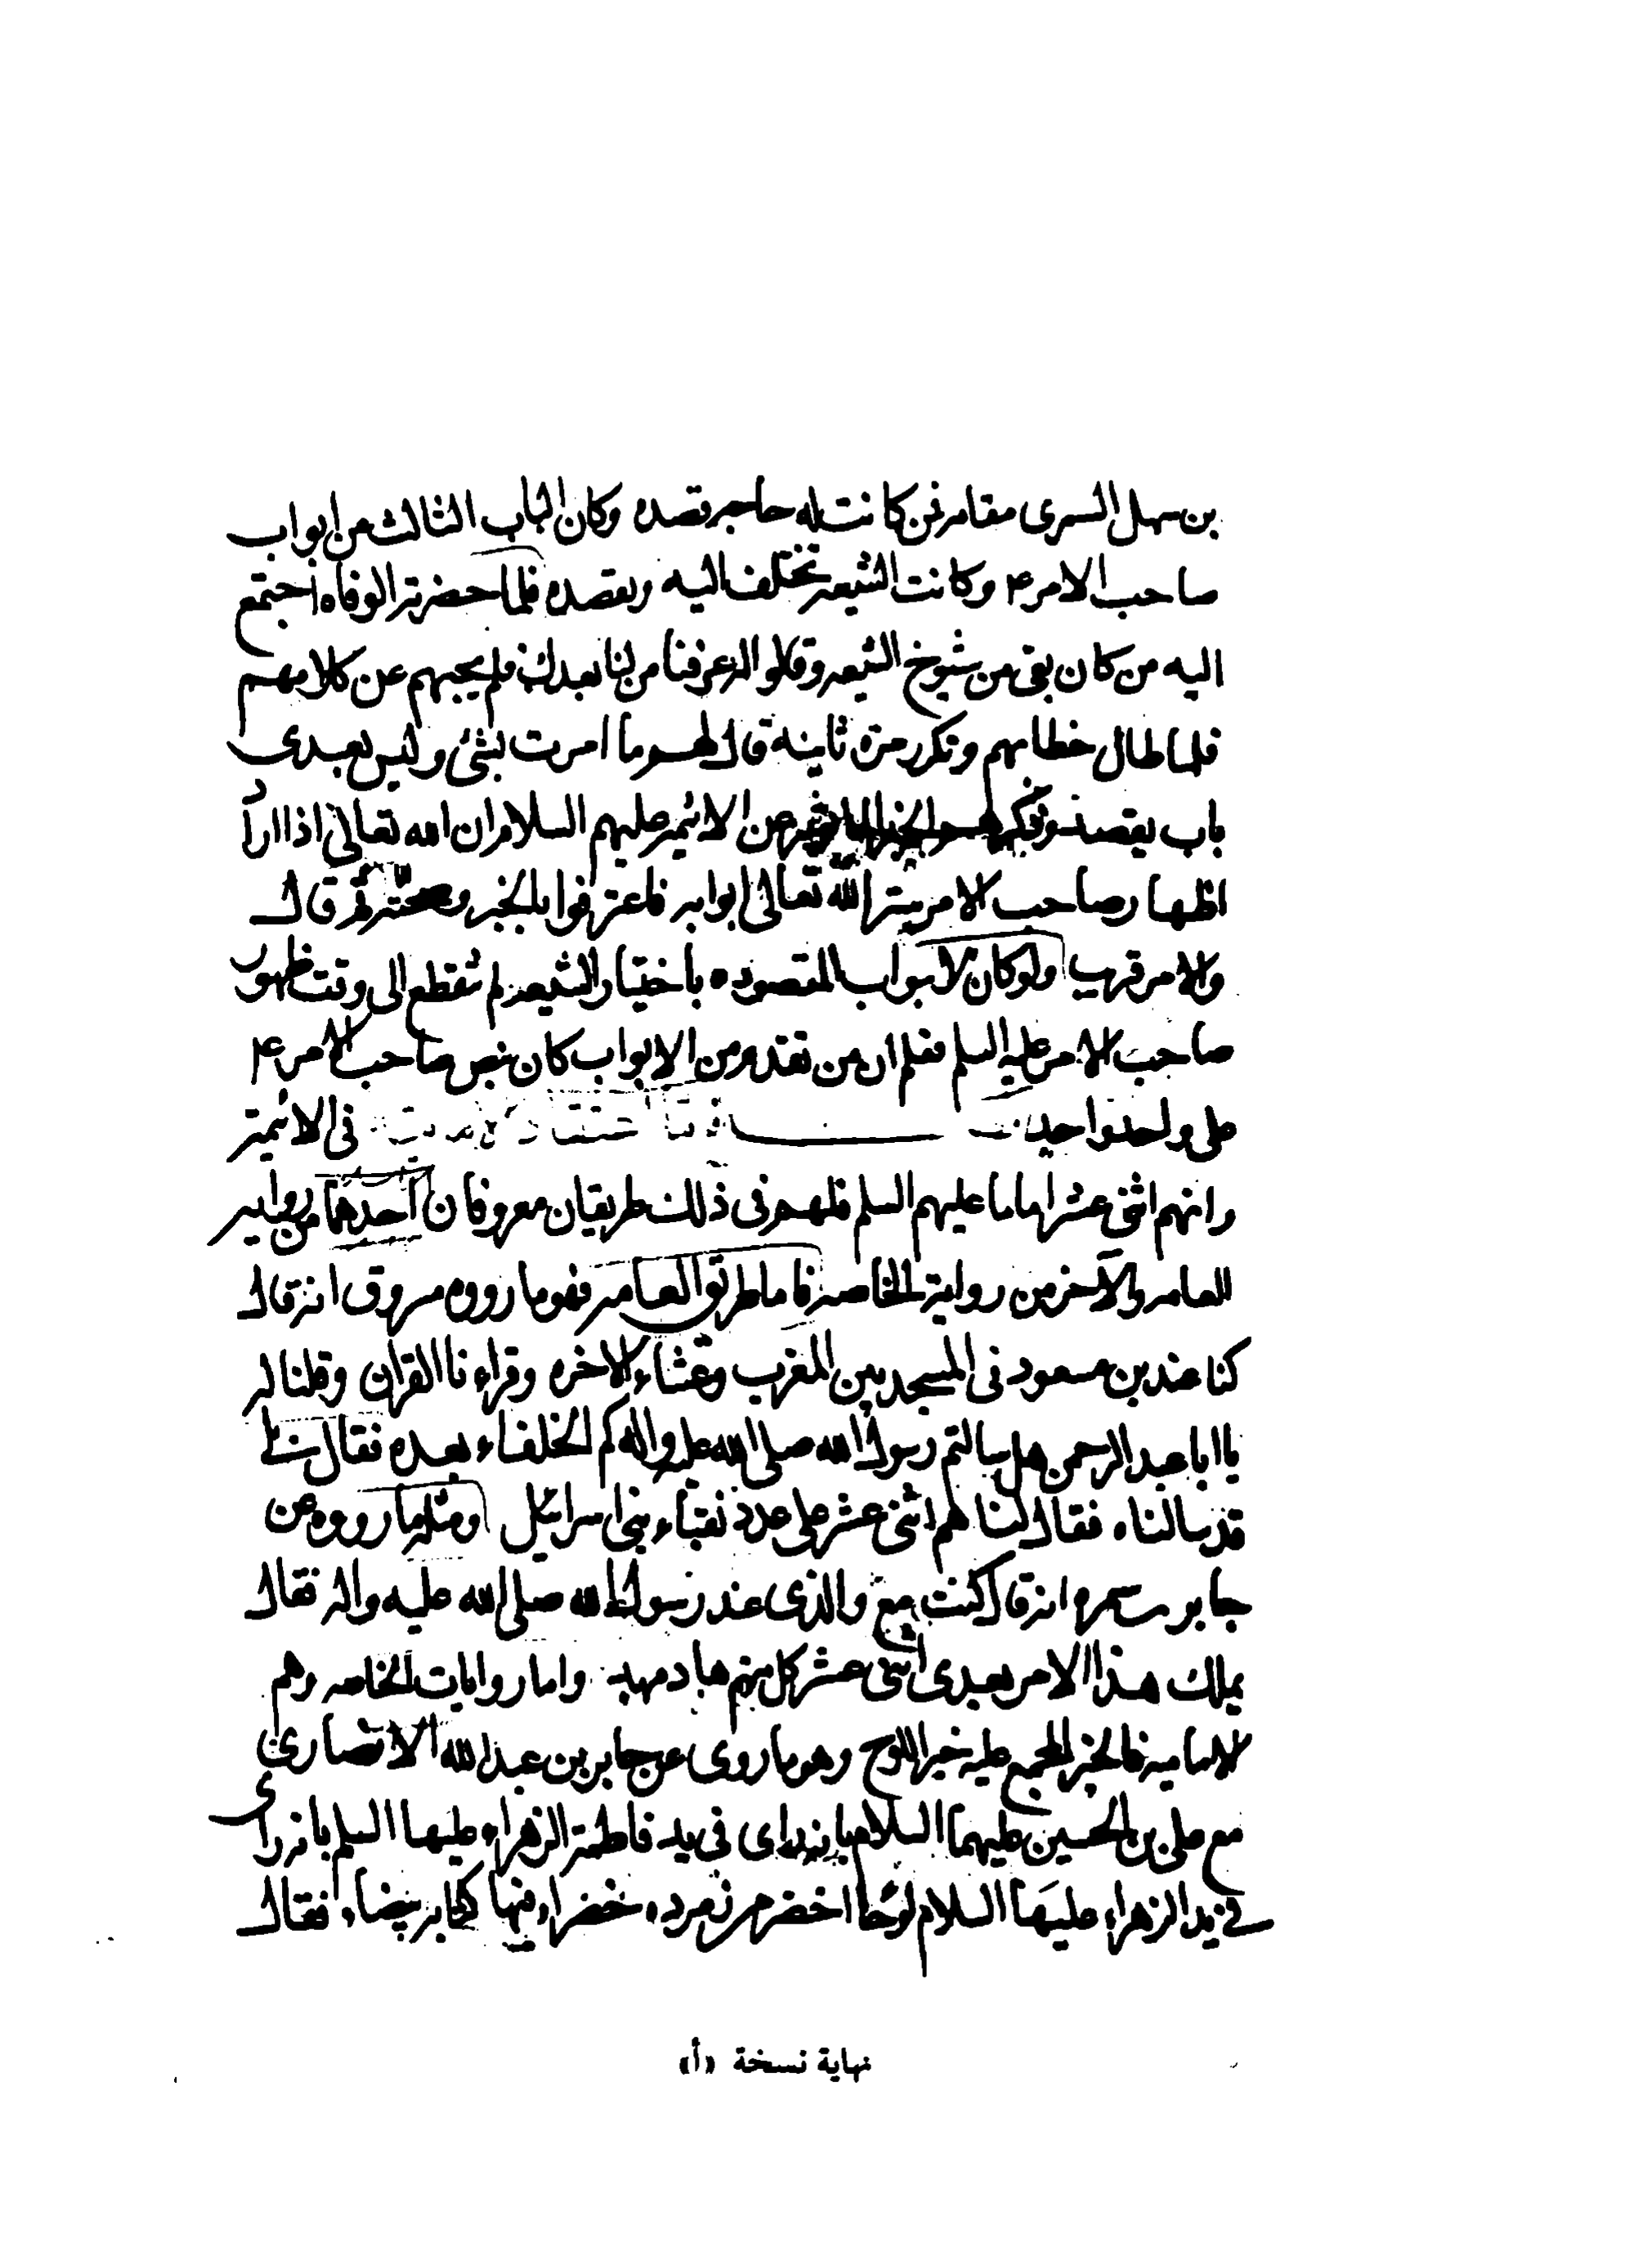 بن سهل السمرى مقامه فمن كانت له حاجه قصده وكان الباب الثالث من ابواب
صاحب الامر ۴ وكانت الشيعه تختلف اليه وتقصده فلما حضرته الوفاه اجتمع
اليه من كان بقى من شيوخ الشيعه وقالوا له عرفنا من لنا بعدك فلم يجبهم عن كلامهم
فلما طال خطابهم وتكرر مرة ثانية قال لهم ما امرت بشئ وليس بعدى
باب يقصد وتذكر هم الخبر عن الائمه عليهم السلام ان الله تعالى اذا اراد
اظهار صاحب الامر ستر الله تعالى ابوابه فاعترفوا بالخبر وصحته ثم قال
والامر قريب ولو كان الابواب المقصوده باختيار الشيعه لم تنقطع الى وقت ظهور
صاحب الامر عليه السلم فعلم ان من تقدم من الابواب كان بنص صاحب الامر ۴
على واحد واحد فى الائمة
وانهم اثنى عشر اماما عليهم السلم فلهم فى ذلك طريقان معروفان احدهما من روايه
العامه والآخر من رواية الخاصه فاما طريق العامه فهو ما رووه مسروق انه قال
كنا عند بن مسعود فى المسجد بين المغرب وعشاء الاخره وقراءنا القران وقلنا له
يا ابا عبد الرحمن هل سالتم رسول الله صلى الله عليه واله كم الخلفاء بعده فقال
قد سالناه فقال لنا هم اثنى عشر على عدد نقباء بنى اسرائيل ومثله ما رووه عن
جابر سمره انه قال كنت مع والدى عند رسول الله صلى الله عليه واله فقال
يملك هذا الامر بعدى اثنى عشر كل منهم هاد مهد واما روايات الخاصه وهم
الاماميه فالخبر المجمع عليه خبر اللوح وهو ما روى عن جابر بن عبد الله الانصارى
مع على بن الحسين عليهما السلام بانه راى فى يد فاطمة الزهراء عليها السلم بانه راى
فى يد الزهراء عليها السلام لوحا اخضر من زمرده خضراء فيها كتابه بيضاء فقال
نهاية نسخة «أ»